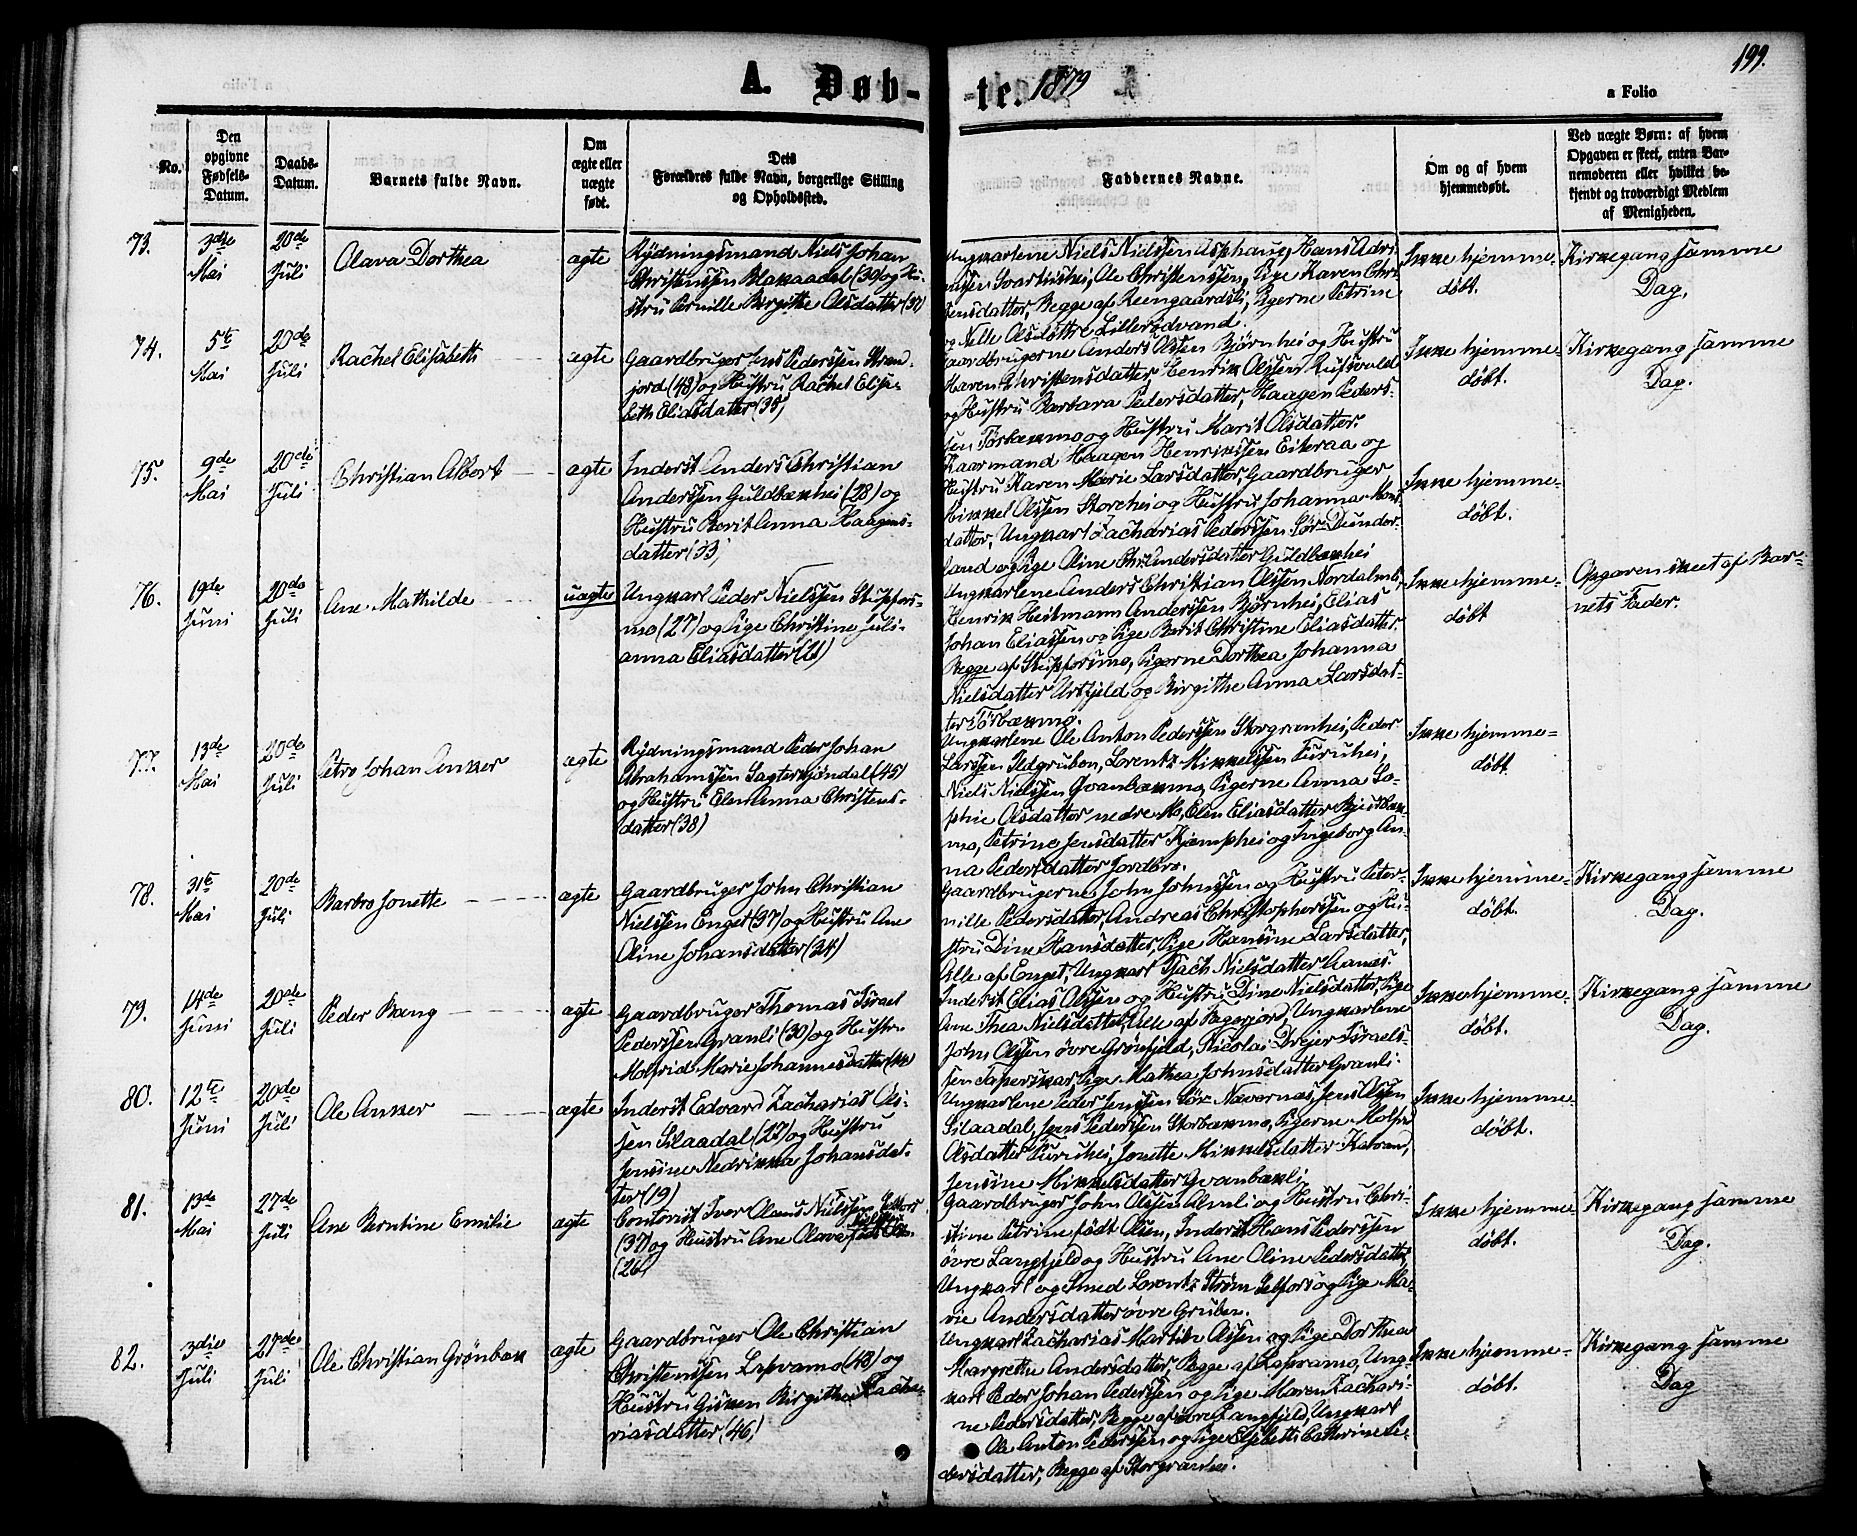 199.
A. Døb-
te. 1879
a Folio
No.
Den
opgivne
Fødsels-
Datum.
Daabs-
Datum.
Barnets fulde Navn.
Om
ægte eller
uægte
født.
Dets
Forældres fulde Navn, borgerlige Stilling
og Opholdssted.
Faddernes Navne.
Om og af hvem
hjemmedøbt.
Ved uægte Børn: af hvem
Opgaven er skeet, enten Bar-
nemoderen eller hvilket be-
kjendt og troværdigt Medlem
af Menigheden.
73.
3die
Mai
20de
Juli
Olava Dorthea
ægte
Rydningsmand Niels Johan
Christenssen Blakaadal (39) og Hu-
stru Pernille Birgitte Olsdatter (37)
Ungkarlene Niels Nielssen Asphaug, Hans Adri-
anssen Svartishei, Ole Christenssen, Pige Karen Chri-
stensdatter, Begge af Reengaardsli, Pigerne Petrine
og Nelle Olsdøttre Lillerødvand.
Ikke hjemme-
døbt.
Kirkegang samme
Dag.
74.
5te
Mai
20de
Juli
Rachel Elisabeth
ægte
Gaardbruger Jens Pederssen Stran-
jord (43) og Hustru Rachel Elisa-
beth Eliasdatter (35)
Gaardbrugerne Anders Olssen Bjørnhei og Hustru
Maren Christensdatter, Henrik Olssen Rufsvold
og Hustru Barbara Pedersdatter, Haagen Peders-
sen Tørbækmo og Hustru Marit Olsdatter.
Ikke hjemme-
døbt.
Kirkegang samme
Dag.
75.
9de
Mai
20de
Juli
Christian Albert
ægte
Inderst Anders Christian
Anderssen Guldbækhei (28) og
Hustru Berit Anna Haagens-
datter (33)
Kaarmand Haagen Henrikssen Eiteraa og
Hustru Karen Marie Larsdatter, Gaardbruger
Mikkel Olssen Storehei og Hustru Johanna Mons-
datter, Ungkarl Zacharias Pederssen Sør-Dunder-
land og Pige Oline Chr. Andersdatter Guldbækhei
Ikke hjemme-
døbt.
76.
19de
Juni
20de
Juli
Ane Mathilde
uægte
Ungkarl Peder Nielssen Stupfors-
mo (27) og Pige Christine Juli-
anna Eliasdatter (21)
Ungkarlene Anders Christian Olssen Nordalmli,
Henrik Heitmann Anderssen Bjørnhei, Elias
Johan Eliassen og Pige Berit Christine Eliasdatter,
Begge af Stupforsmo, Pigerne Dorthea Johanna
Nielsdatter Urtfjeld og Birgithe Anna Larsdat-
ter Tørbækmo.
Ikke hjemme-
døbt
Opgaven skeet af Bar-
nets Fader.
77.
13de
Mai
20de
Juli
Petro Johan Anker
ægte
Rydningsmand Peder Johan
Abrahamssen Sagterkjøndal (45)
og Hustru Elen Anna Christens-
datter (38)
Ungkarlene Ole Anton Pederssen Storgranhei, Peder
Larssen Ildgruben, Lorentz Mikkelssen Furuhei,
Niels Nielssen Qvanbækmo, Pigerne Anna So-
phie Olsdatter nedre Mo, Elen Eliasdatter Bjeirbæk-
mo, Petrine Jensdatter Kjæmphei og Ingeborg An-
na Pedersdatter Jordbro.
Ikke hjemme-
døbt.
78.
31te
Mai
20de
Juli
Barbro Jonette
ægte
Gaardbruger John Christian
Nielssen Enget (37) og Hustru Ane
Oline Johansdatter (34)
Gaardbrugerne John Johnssen og Hustru Peter-
nille Pedersdatter, Andreas Christopherssen og Hu-
stru Dine Hansdatter, Pige Hansine Larsdatter,
Alle af Enget, Ungkarl Isach Nielsdatter Aanæs.
Ikke hjemme-
døbt.
Kirkegang samme
Dag.
79.
14de
Juni
20de
Juli
Peder Bang
ægte
Gaardbruger Thomas Israel
Pederssen Granli (30) og Hustru
Molfrid Marie Johannesdatter (44)
Inderst Elias Olssen og Hustru Dine Nielsdatter, Pige
Ane Thea Nielsdatter, Alle af Bagerjord, Ungkarlene
John Olssen øvre Grønfjeld, Nicolai Drejer Israels-
sen Taperskar, Pige Mathea Johnsdatter Granli.
Ikke hjemme-
døbt.
Kirkegang samme
Dag.
80.
12te
Juni
20de
Juli
Ole Anker
ægte
Inderst Edvard Zacharias Ols-
sen Silaadal (27) og Hustru
Jensine Nedrikka Johansdat-
ter (19)
Ungkarlene Peder Jenssen Sør Nævernæs, Jens Olssen
Silaadal, Jens Pederssen Storbækmo, Pigerne Molfri
Olsdatter Furuhei, Jonette Mikkelsdatter Kalvand,
Jensine Mikkelsdatter Qvanbækli
Ikke hjemme-
døbt.
81.
13de
Mai
27de
Juli
Ane Berntine Emilie
ægte
Contorist Iver Olaus Nielssen Selfors
(37) og Hustru Ane Olava født Olsen
(26)
Gaardbruger John Olssen Almli og Hustru Chri-
stine Petrine født Olsen, Inderst Hans Pederssen
øvre Langfjeld og Hustru Ane Oline Pedersdatter,
Ungkarl og Smed Lorentz Strøm Selfors og Pige Ma-
rie Andersdatter øvre Gruben.
Ikke hjemme-
døbt.
Kirkegang samme
Dag.
82.
3die
Juli
27de
Juli
Ole Christian Grønbæk
ægte
Gaardbruger Ole Christian
Christenssen Lapvamo (48) og
Hustru Gisken Birgithe Zacha-
riasdatter (46)
Ungkarl Zacharias Martin Olssen og Pige Dorthea
Margrethe Andersdatter, Begge af Lapvamo, Ung-
karl Peder Johan Pederssen og Pige Maren Zachari-
ne Pedersdatter, Begge af øvre Langfjeld, Ungkarl
Ole Anton Pederssen og Pige Elisabeth Catherine Pe-
dersdatter, Begge af Storgranhei.
Ikke hjemme-
døbt.
Kirkegang samme
Dag